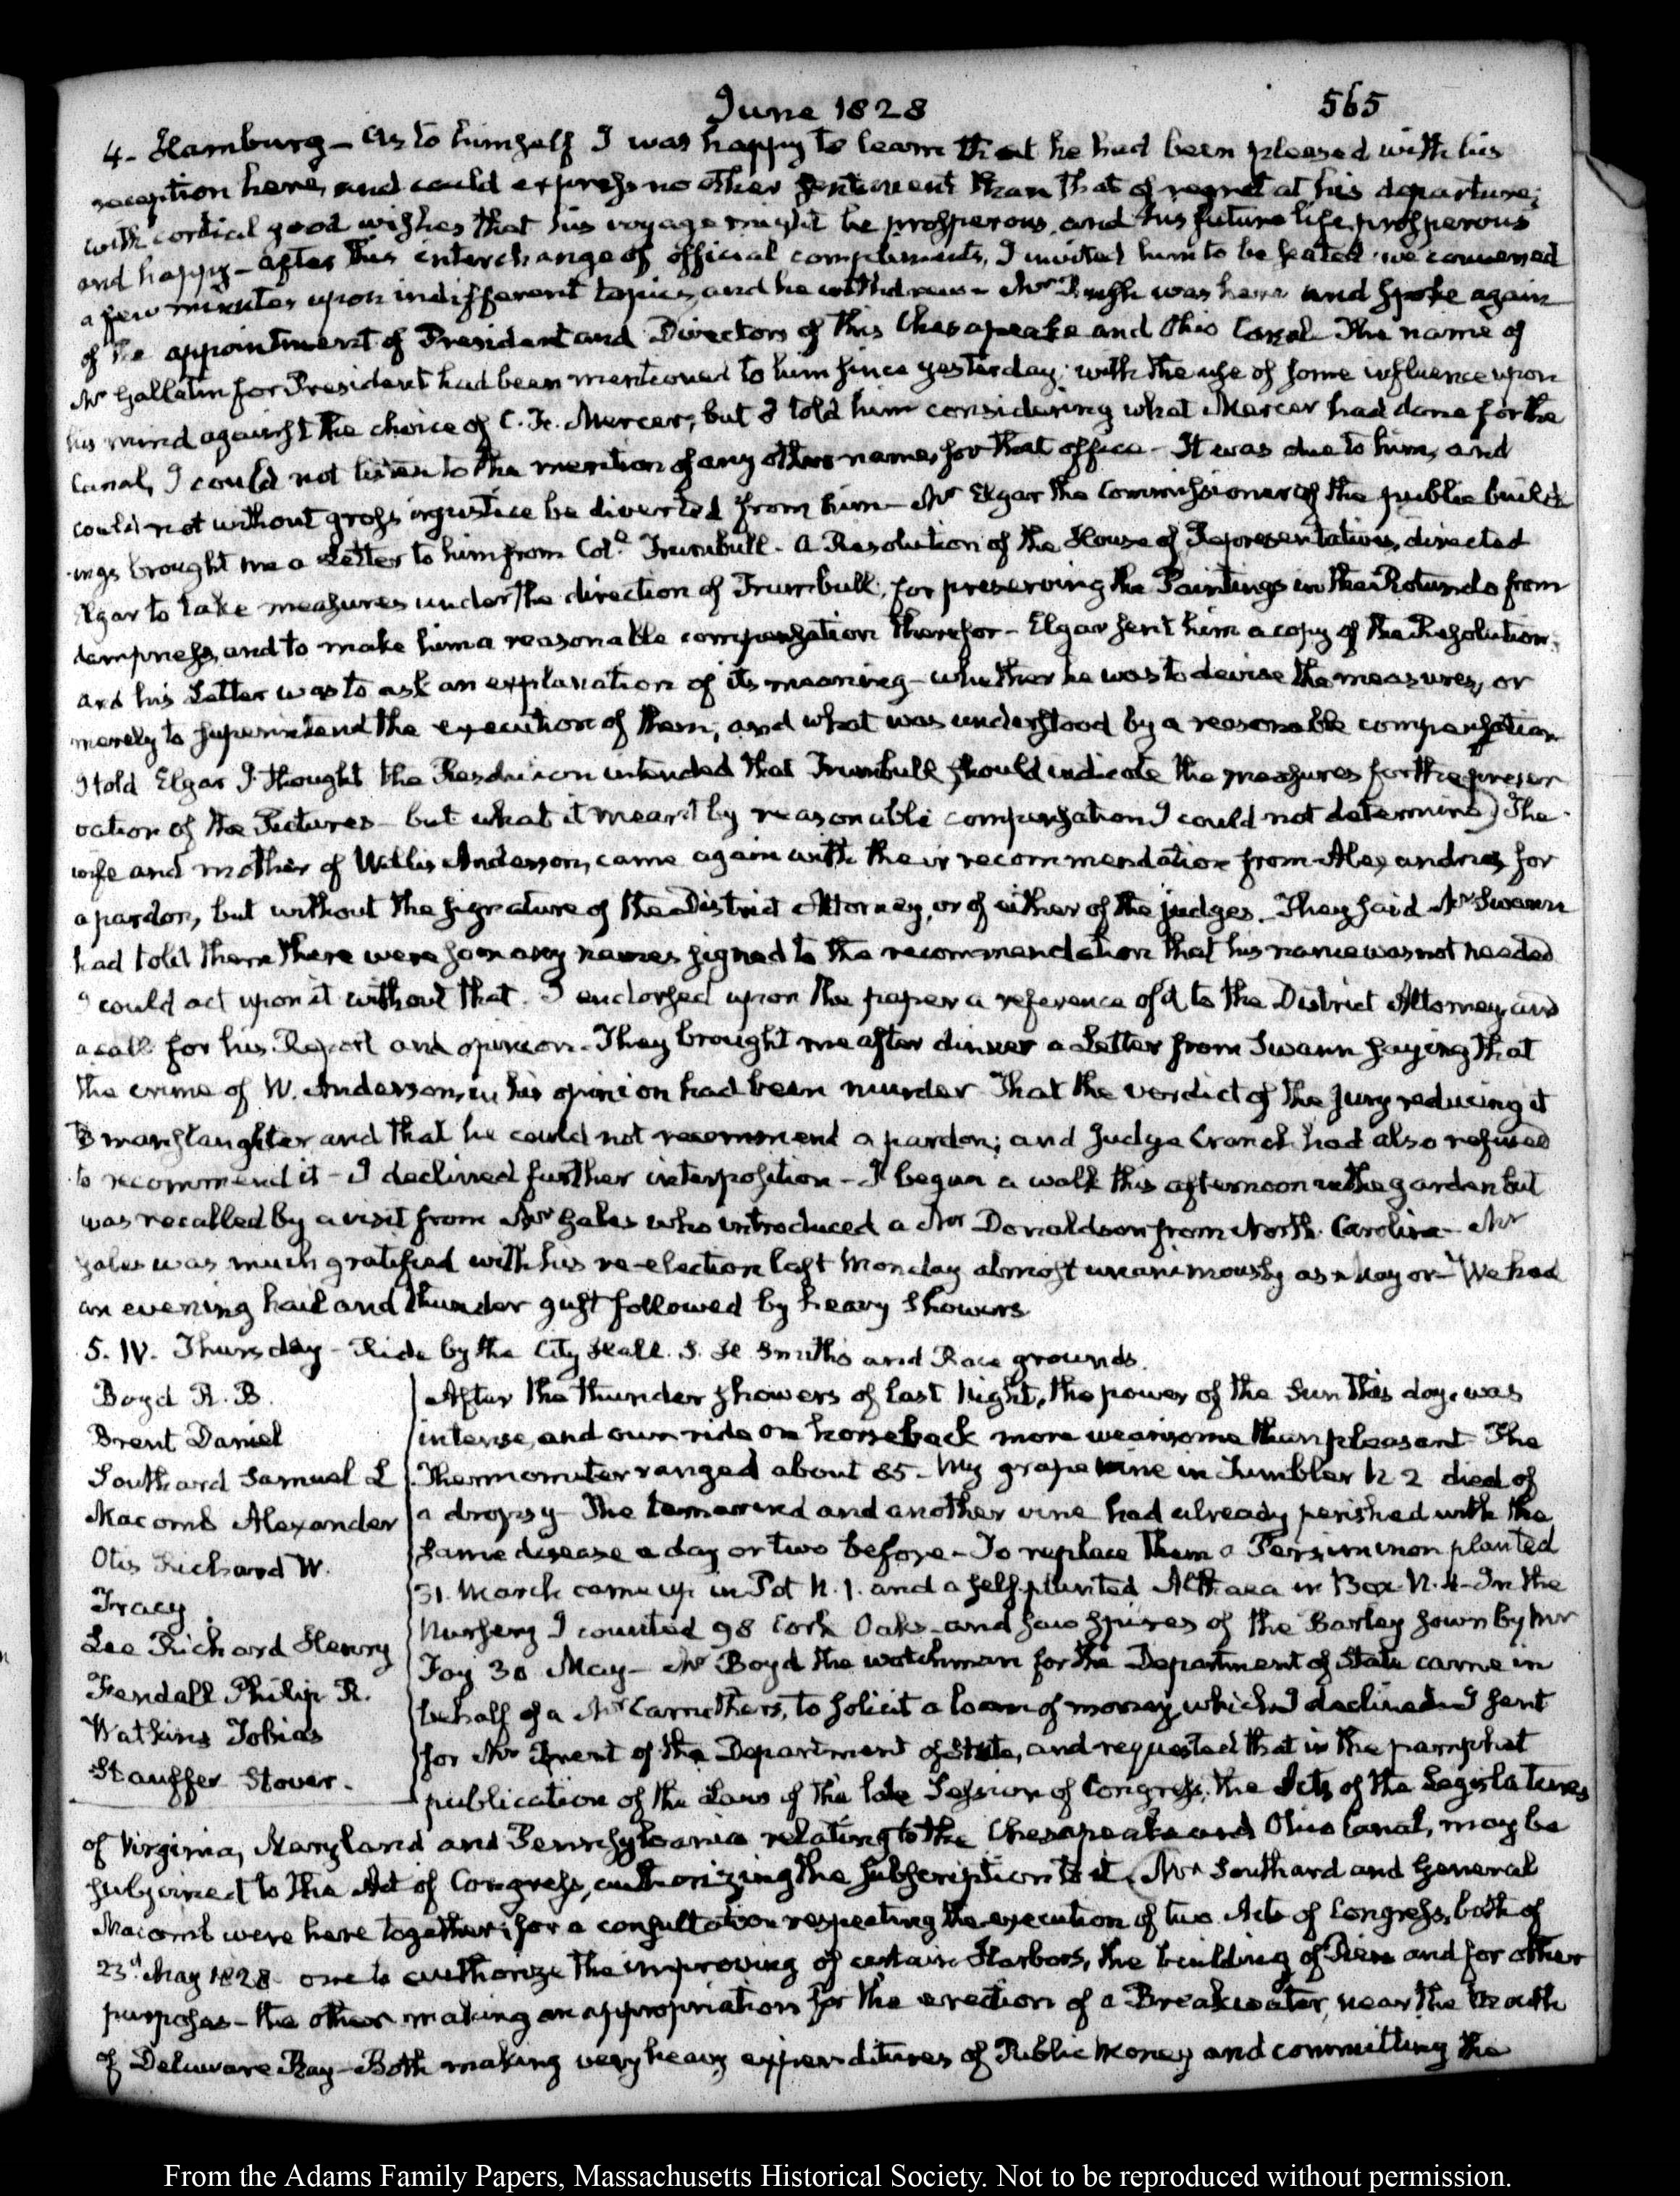 June 1828
565
4- Hamburg- As to himself I was happy to learn that he had been pleased with his
reception here, and could express no other sentiment than that of regret at his departure;
with cordial good wishes that his voyage might be prosperous, and his future life prosperous
and happy- After this interchange of official compliments, I invited him to be seated we conversed
a few minutes upon indifferent topics, and he withdrew- Mr Rush was here and spoke again
of the appointment of President and Directors of this Chesapeake and Ohio Canal- The name of
Mr Gallatin for President had been mentioned to him since yesterday: with the use of some influence upon
his mind against the choice of C. F. Mercer; but I told him considering what Mercer had done for the
Canal, I could not listen to the mention of any other name, for that office- It was due to him, and
could not without gross injustice be diverted from him- Mr Elgar the Commissioner of the public build
ings brought me a Letter to him from Col. Trumbull- A Resolution of the House of Representatives, directed
Elgar to take measures under the direction of Trumbull, for preserving the Paintings in the Rotunda from
dampness, and to make him a reasonable compensation therefor- Elgar sent him a copy of the Resolution.
and his Letter was to ask an explanation of its meaning- whether he was to devise the measures, or
merely to superintend the execution of them; and what was understood by a reasonable compensation
I told Elgar I thought the Resolution intended that Trumbull should indicate the measures for the preser
vation of the Pictures- but what it meant by reasonable compensation I could not determine) The
wife and mother of Willis Anderson, came again with their recommendation from Alexandria, for
a pardon, but without the signature of the District Attorney, or of either of the judges. They said Mr Swann
had told them there were so many names signed to the recommendation that his name was not needed
I could act upon it without that. I endorsed upon the paper a reference of it to the District Attorney, and
a call for his Report and opinion- They brought me after dinner a Letter from Swann saying that
the crime of W. Anderson, in his opinion had been murder That the verdict of the Jury reducing it
to manslaughter and that he could not recommend a pardon; and Judge Cranch had also refused
to recommend it- I declined further interposition- I began a walk this afternoon in the garden but
was recalled by a visit from Mr Gales who introduced a Mr Donaldson from North Carolina- Mr
Gales was much gratified with his re-election last Monday almost unanimously as Mayor- We had
an evening hail and thunder gust followed by heavy showers
5. IV. Thursday- Ride by the City Hall. S. H. Smith's and Race grounds.
Boyd R. B.
Brent Daniel
Southard Samuel L
Macomb Alexander
Otis Richard W.
Tracy.
Lee Richard Henry
Fendall Philip R.
Watkins Tobias
Stauffer Stover.
After the thunder showers of last Night, the power of the Sun this day, was
intense, and our ride on horseback more wearisome than pleasant- The
Thermometer ranged about 85- My grape vine in Tumbler N 2 died of
a dropsy- The tamarind and another vine had already perished with the
same disease a day or two before- To replace them a Persimmon planted
31. March came up in Pot N. 1. and a self planted Althaea in Box N. 4- In the
Nursery I counted 98 Cork Oaks- and saw spires of the Barley sown by Mr
Foy 30 May- Mr Boyd the watchman for the Department of State came in
behalf of a Mr Carruthers, to solicit a loan of money, which I declined- I sent
for Mr Brent of the Department of State, and requested that in the pamphlet
publication of the Laws of the late Session of Congress, the Acts of the Legislatures
of Virginia, Maryland and Pennsylvania relating to the Chesapeake and Ohio Canal, may be
subjoined to the Act of Congress, authorizing the subscription to it (Mr Southard and General
Macomb were here together; for a consultation respecting the execution of two Acts of Congress, both of
23d May 1828 one to authorize the improving of certain Harbors, the building of Piers and for other
purposes- the other making an appropriation for the erection of a Breakwater, near the mouth
of Delaware Bay- Both making very heavy expenditures of Public Money and committing the
From the Adams Family Papers, Massachusetts Historical Society. Not to be reproduced without permission.